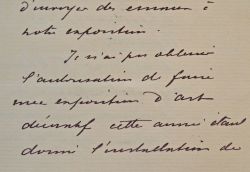 d'envoyer des emmer à
notre exposition.
Je n'ai pas obtenu
l'autorisation de faire
une exposition d'art
décoratif cette année étant
donné l'installation de